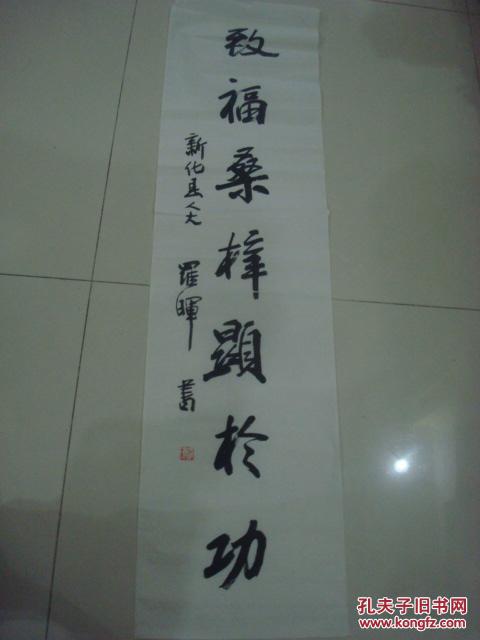 致福桑梓顯於功
新化县人大 羅暉 書
孔夫子旧书网
www.kongfz.com